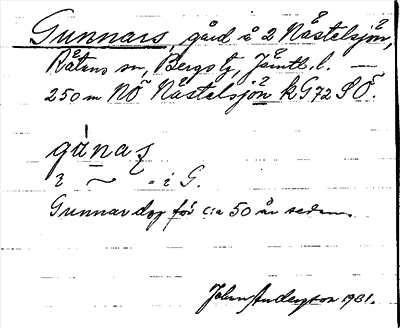 Gunnars, gård å 2 Nästelsjön,
Rätans sn, Bergs tg, Jämtl. l. —
250 m NÖ Nästelsjön kG72SÖ.
i ~ = i G.
Gunnar dog för c:a 50 år sedan.
Johan Anderson 1931.